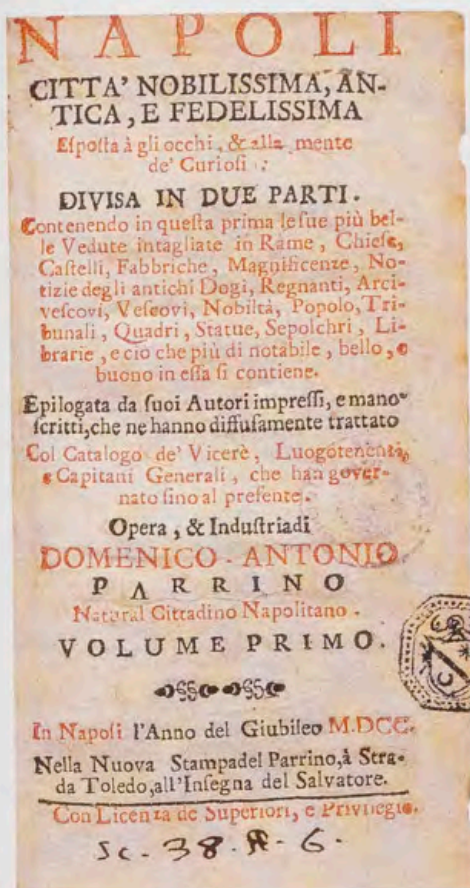 NAPOLI
CITTA' NOBILISSIMA, AN-
TICA, E FEDELISSIMA
Eſpoſta à gli occhi, & alla mente
de' Curioſi :
DIVISA IN DUE PARTI.
Contenendo in queſta prima le ſue più bel-
le Vedute intagliate in Rame, Chieſe,
Caſtelli, Fabbriche, Magnificenze, No-
tizie degli antichi Dogi, Regnanti, Arci-
veſcovi, Veſcovi, Nobiltà, Popolo, Tri-
bunali, Quadri, Statue, Sepolchri, Li-
brarie, e cio che più di notabile, bello, e
buono in eſſa ſi contiene.
Epilogata da ſuoi Autori impreſſi, e mano-
ſcritti, che ne hanno diffuſamente trattato
Col Catalogo de' Vicerè, Luogotenenti,
e Capitani Generali, che han gover-
nato ſino al preſente.
Opera, & Induſtria di
DOMENICO-ANTONIO
PARRINO
Natural Cittadino Napolitano.
VOLUME PRIMO.
In Napoli l'Anno del Giubileo M.DCC.
Nella Nuova Stampa del Parrino, à Stra-
da Toledo, all'Inſegna del Salvatore.
Con Licenza de Superiori, e Privilegio.
Sc. - 38. A - 6.